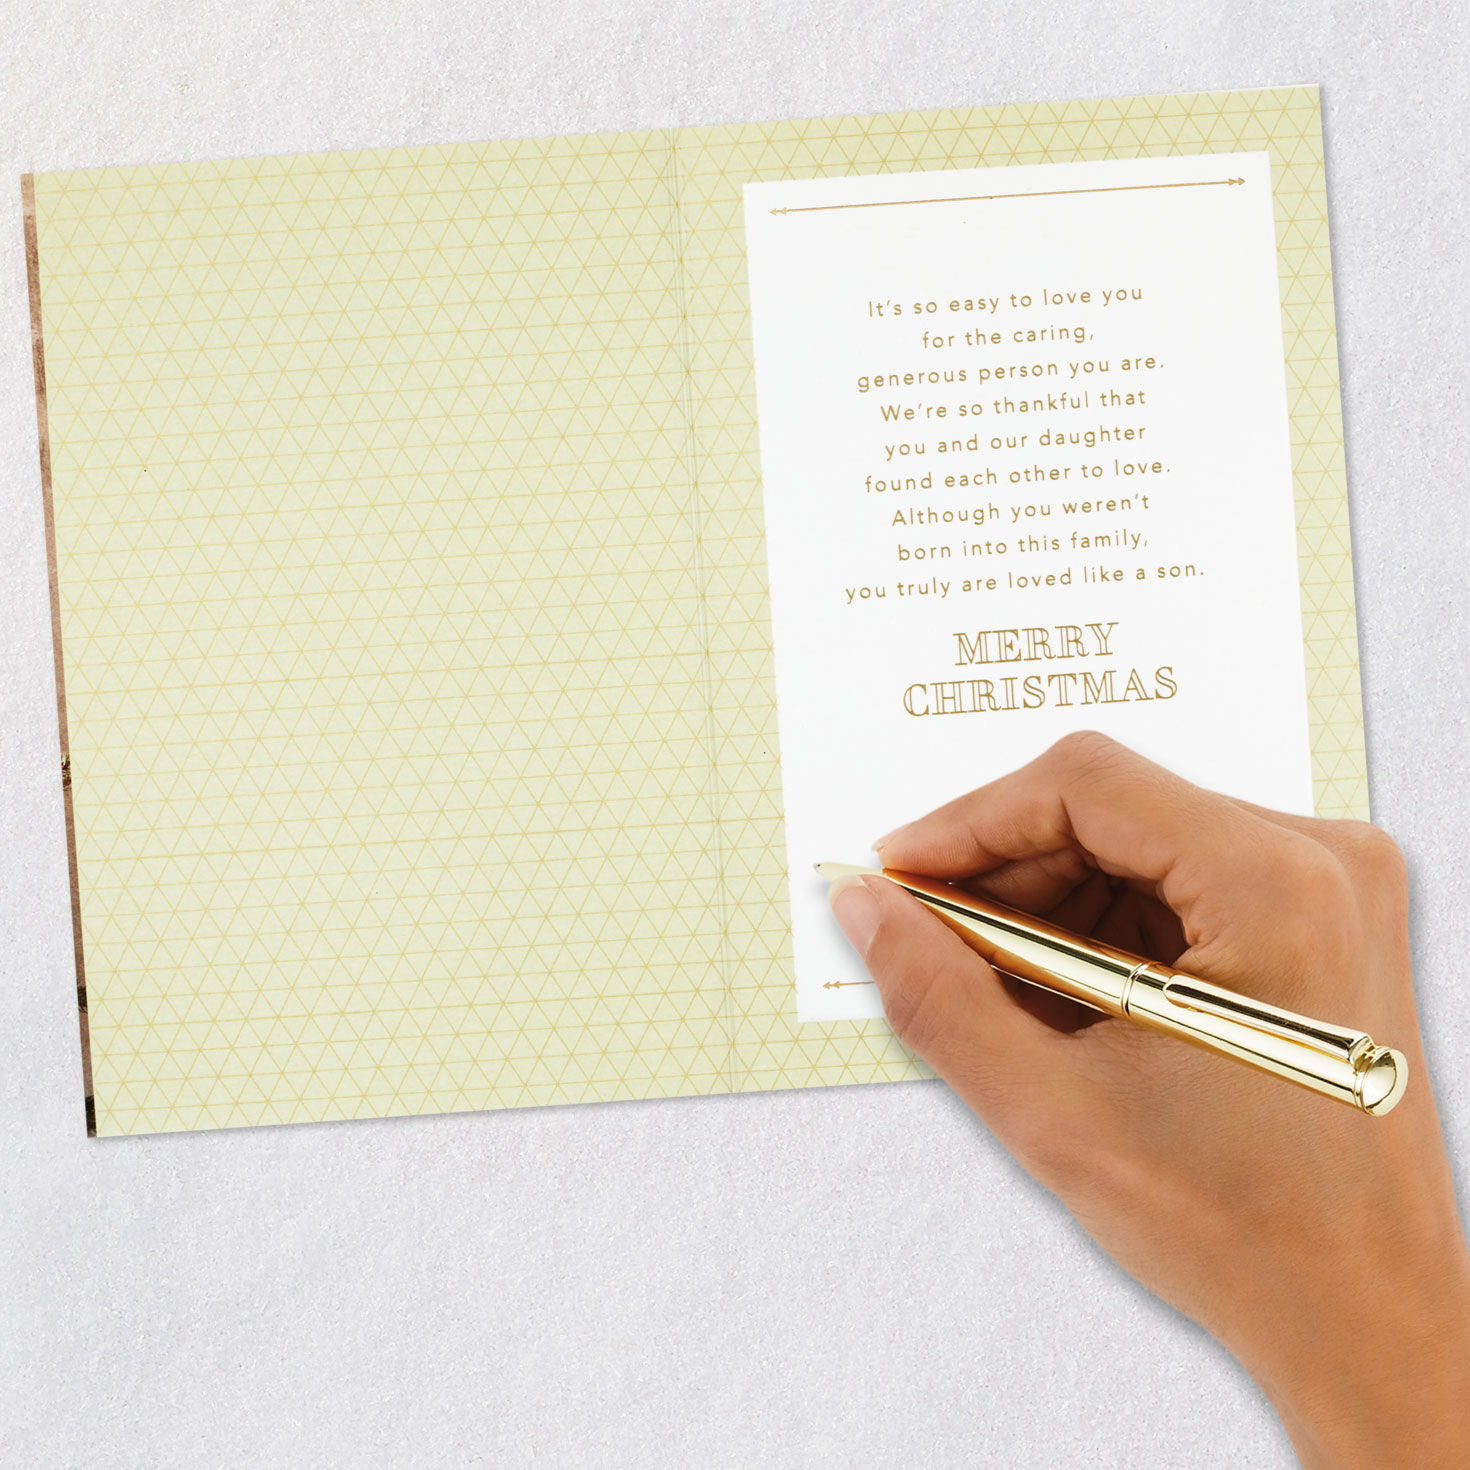 It's so easy to love you
for the caring,
generous person you are.
We're so thankful that
you and our daughter
found each other to love.
Although you weren't
born into this family,
you truly are loved like a son.
MERRY
CHRISTMAS